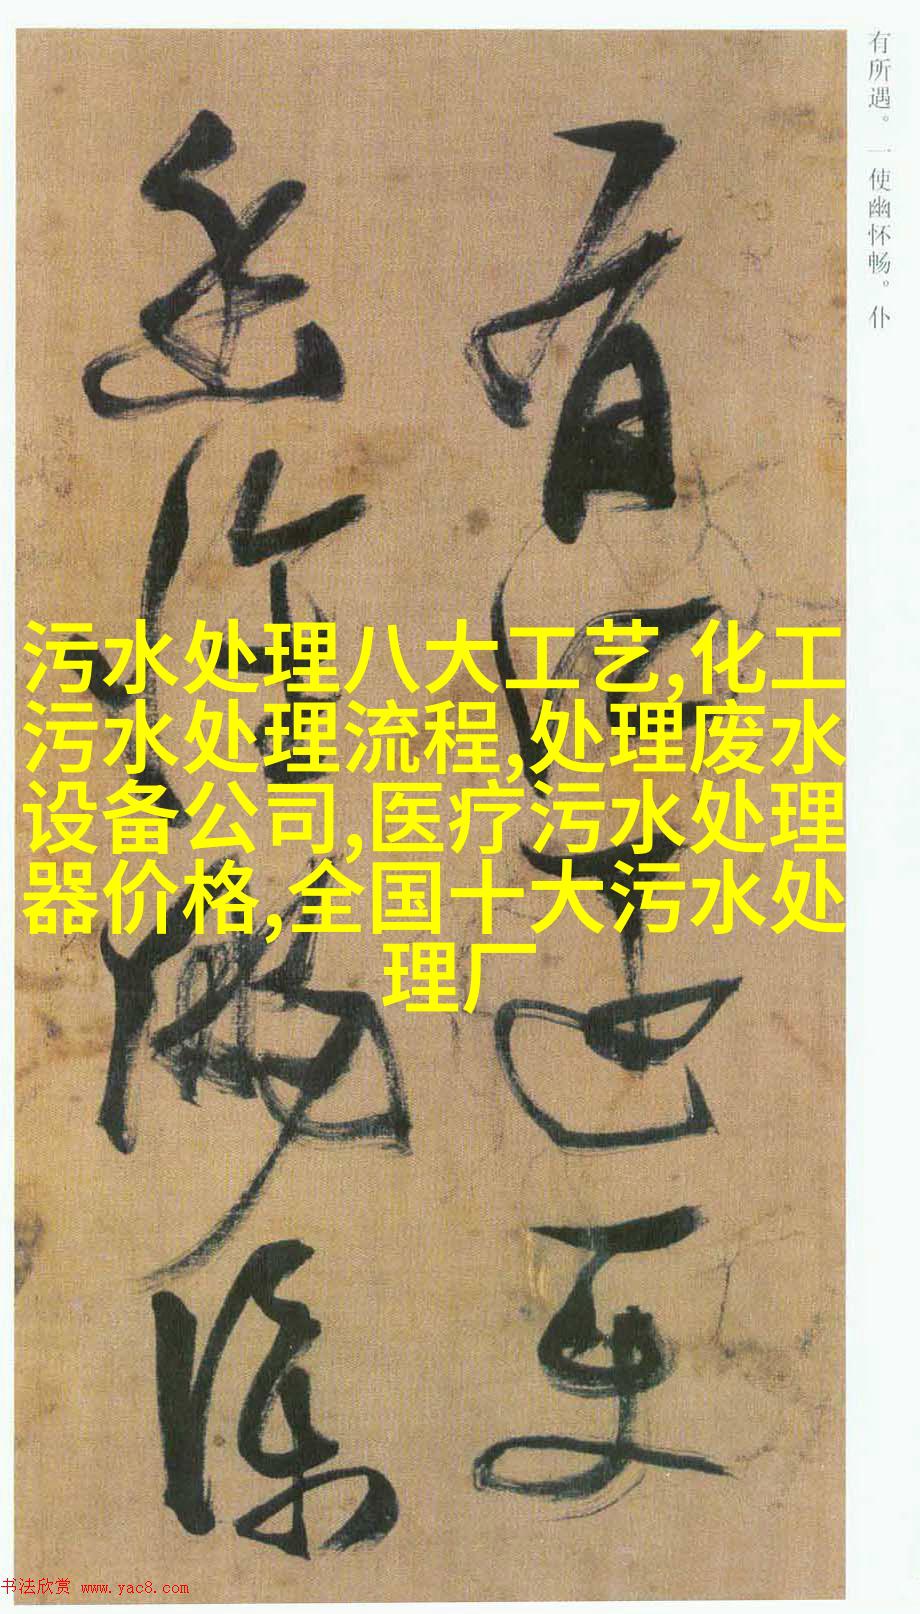 有所遇。一使幽怀畅。仆
污水处理八大工艺,化工
污水处理流程,处理废水
设备公司,医疗污水处理
器价格,全国十大污水处
理厂
书法欣赏 www.yac8.com